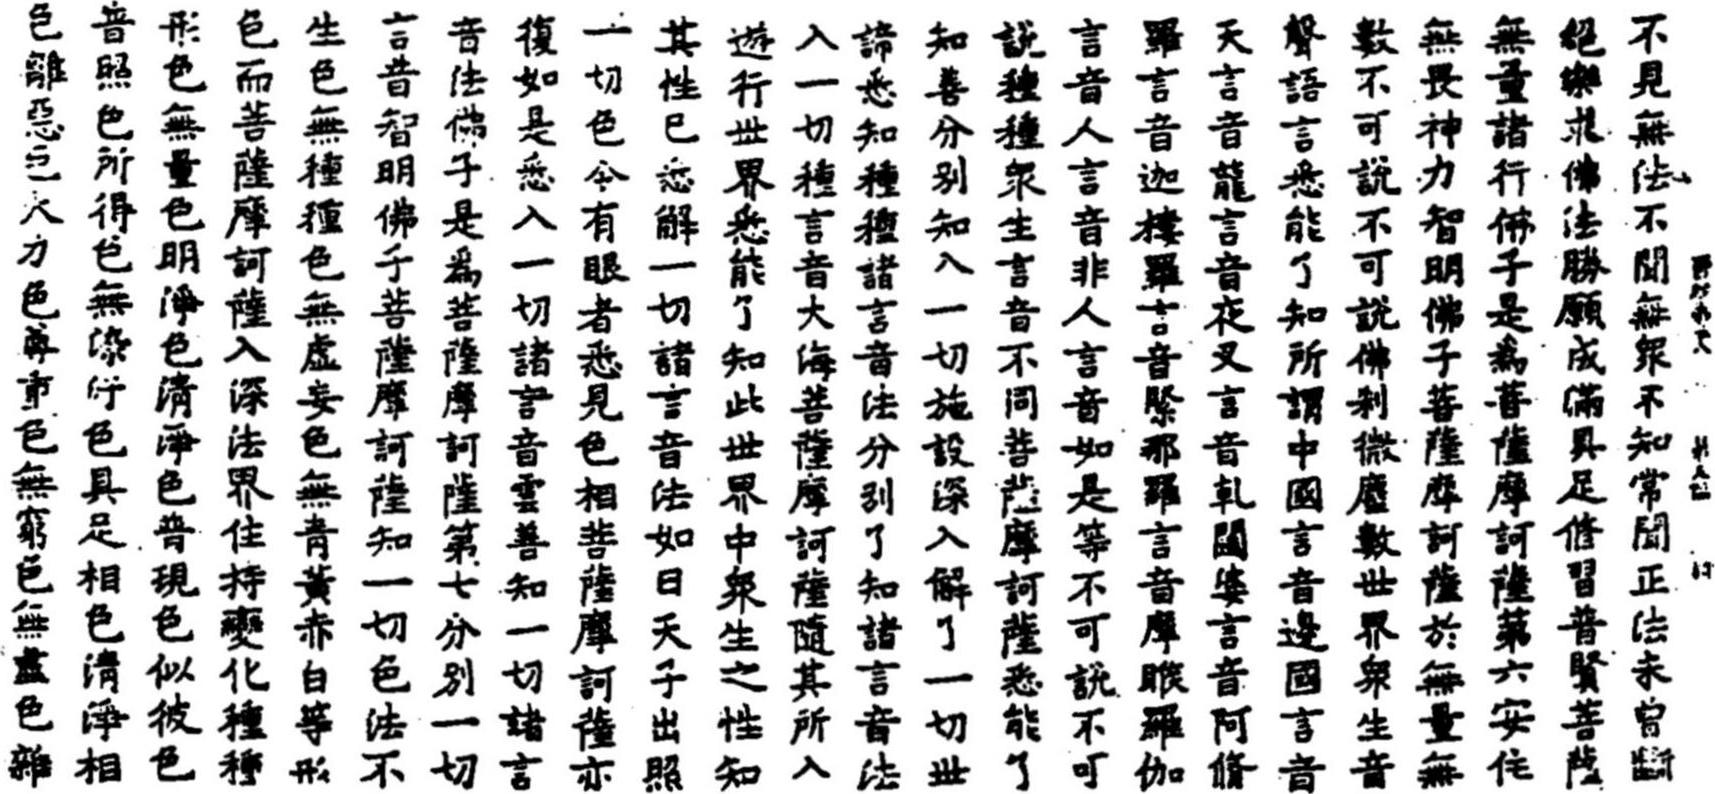 不見無法不聞無眾不知常聞正法未曾斷
絕樂求佛法勝願成滿具足修習普賢菩薩
無量諸行佛子是為菩薩摩訶薩第六安住
無畏神力智明佛子菩薩摩訶薩於無量無
數不可說不可說佛剎微塵數世界眾生音
聲語言悉能了知所謂中國言音邊國言音
天言音龍言音夜叉言音乹闥婆言音阿脩
羅言音迦樓羅言音緊那羅言音摩睺羅伽
言音人言音非人言音如是等不可說不可
說種種眾生言音不同菩薩摩訶薩悉能了
知善分別知入一切施設深入解了一切世
諦悉知種種諸言音法分別了知諸言音法
入一切種言音大海菩薩摩訶薩隨其所入
遊行世界悉能了知此世界中眾生之性知
其性已悉解一切諸言音法如日天子出照
一切色令有眼者悉見色相菩薩摩訶薩亦
復如是悉入一切諸言音雲善知一切諸言
音法佛子是為菩薩摩訶薩第七分別一切
言音智明佛子菩薩摩訶薩知一切色法不
生色無種種色無虛妄色無青黃赤白等形
色而菩薩摩訶薩入深法界住持變化種種
形色無量色明淨色清淨色普現色似彼色
普照色所得色無染行色具足相色清淨相
色離惡色大力色尊重色無窮色無盡色雜